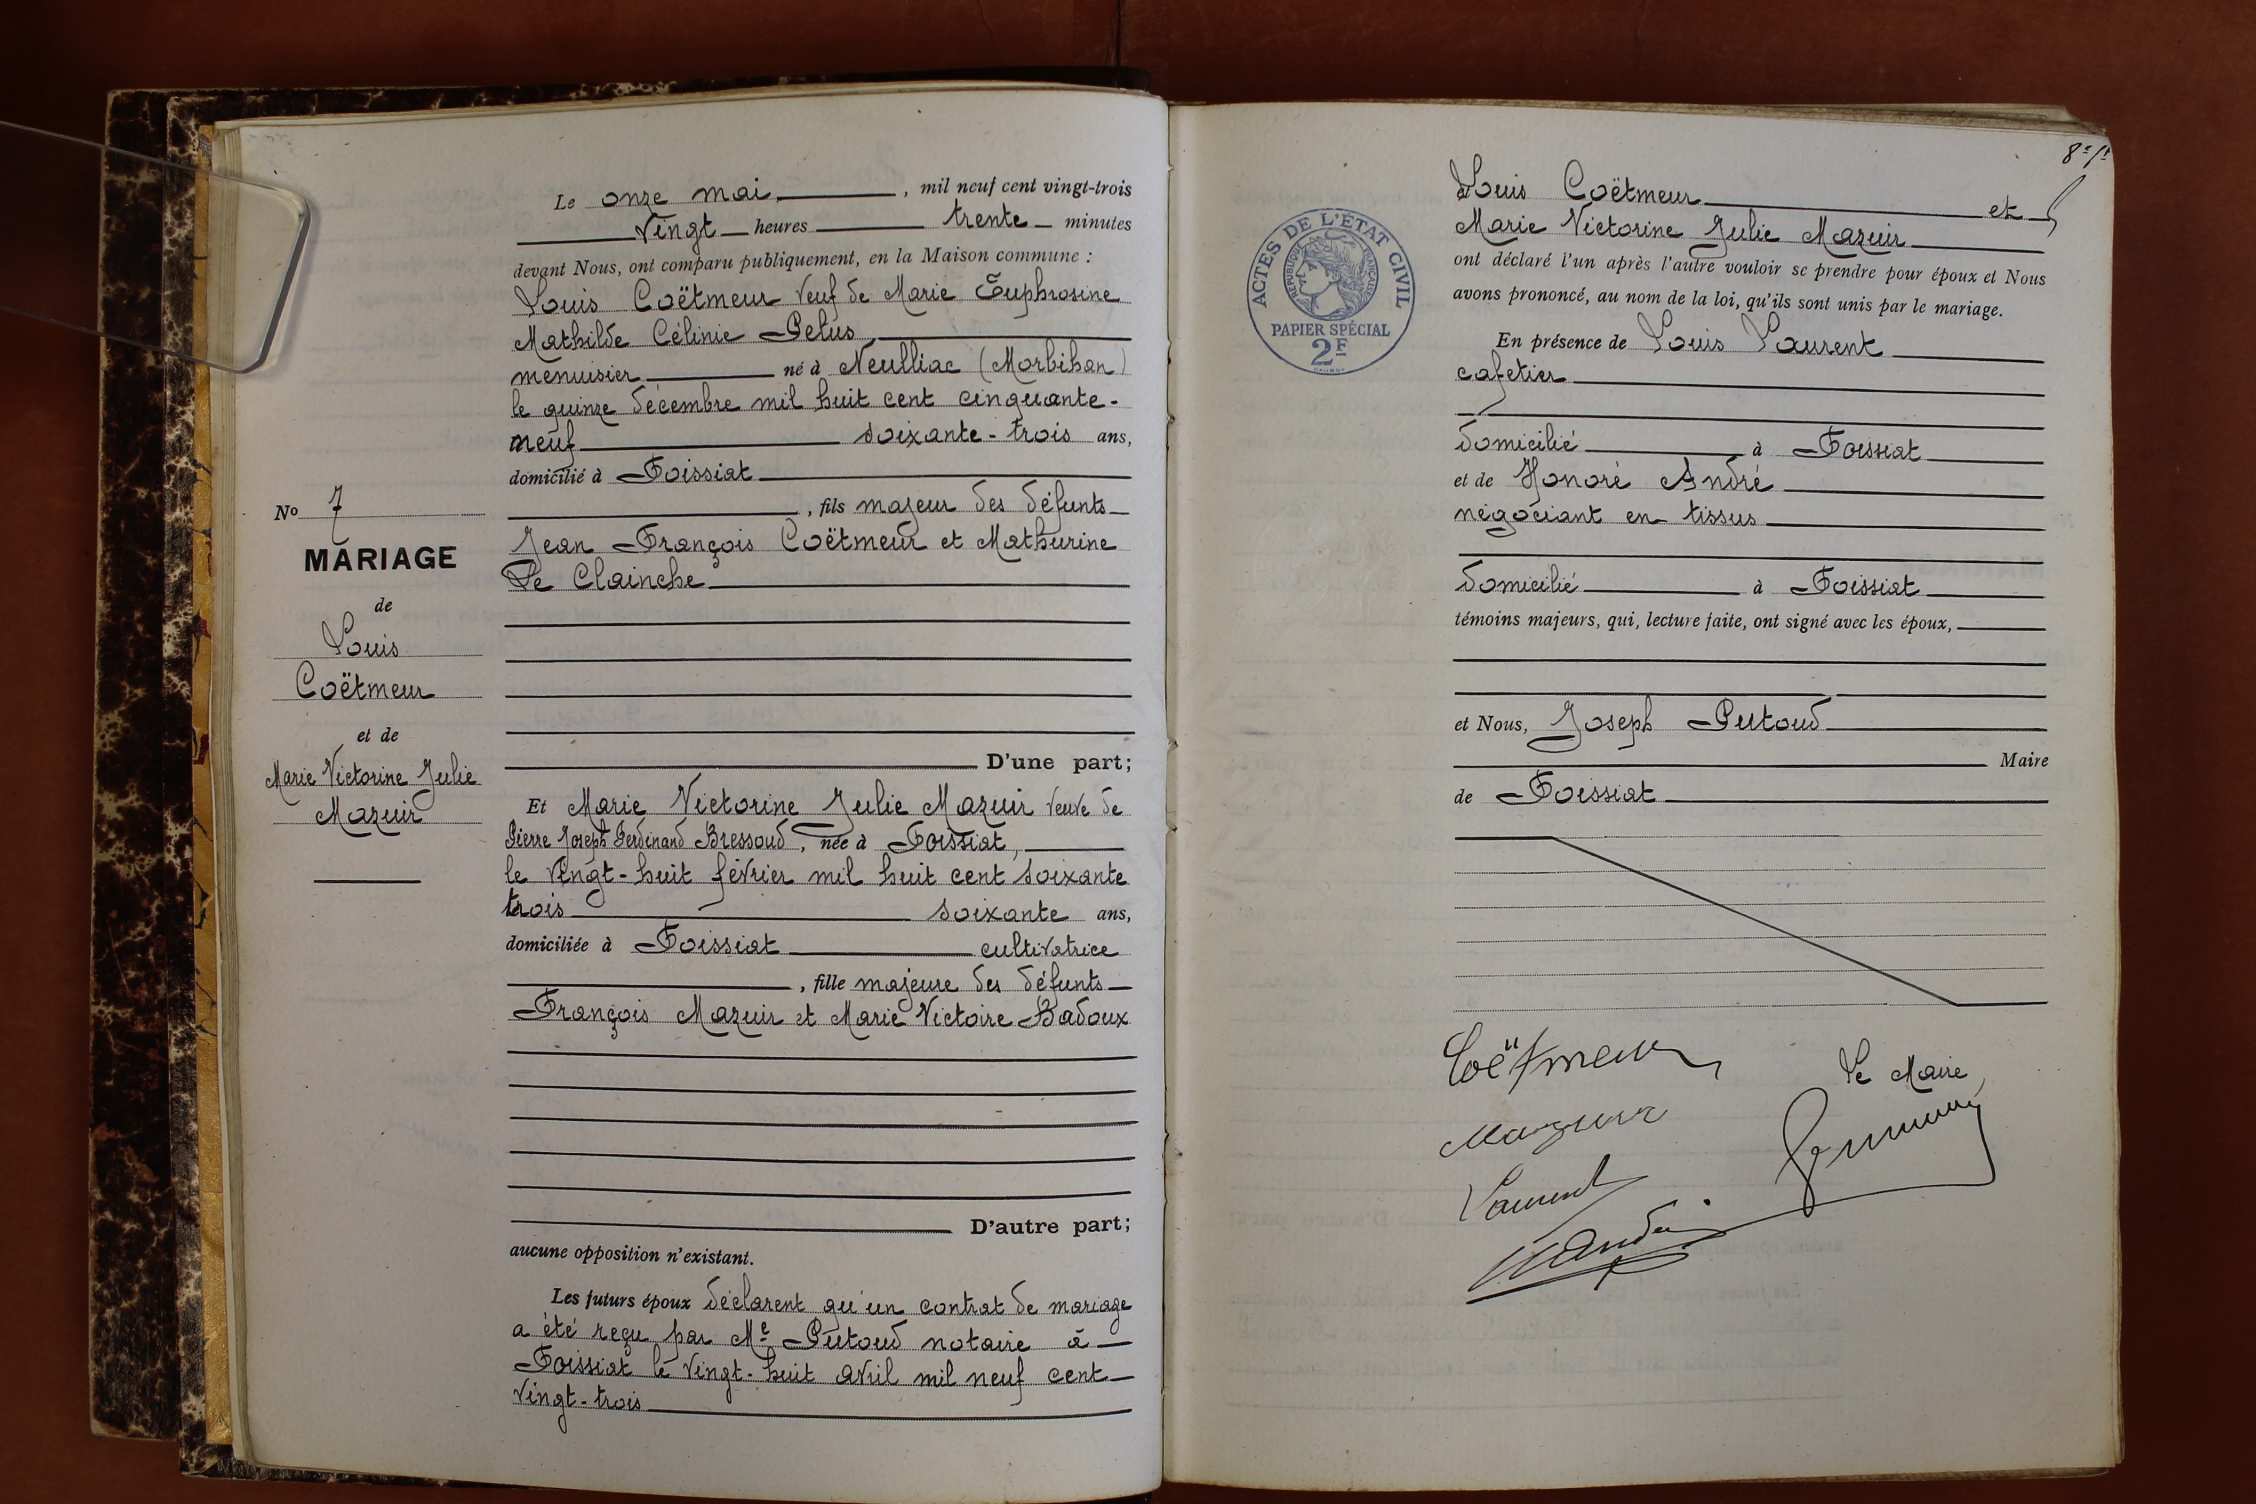 N° 7
MARIAGE
de
Louis
Coëtmeur
et de
Marie Victorine Julie
Mazuir
Le onze mai, mil neuf cent vingt-trois
Vingt heures trente minutes
devant Nous, ont comparu publiquement, en la Maison commune :
Louis Coëtmeur Veuf de Marie Euphrosine
Mathilde Célinie Pelus
menuisier né à Neulliac (Morbihan)
le quinze décembre mil huit cent cinquante-
neuf soixante-trois ans,
domicilié à Foissiat
, fils majeur des défunts
Jean François Coëtmeur et Mathurine
Le Clainche
D'une part;
Et Marie Victorine Julie Mazuir veuve de
Pierre Joseph Ferdinand Bressoud, née à Foissiat,
le vingt-huit février mil huit cent soixante
trois soixante ans,
domiciliée à Foissiat cultivatrice
, fille majeure des défunts
François Mazuir et Marie Victoire Badoux
D'autre part;
aucune opposition n'existant.
Les futurs époux déclarent qu'un contrat de mariage
a été reçu par Me Putoud notaire à
Foissiat le vingt-huit avril mil neuf cent
vingt-trois
8e ft
ACTES DE L'ÉTAT CIVIL
RÉPUBLIQUE FRANÇAISE
PAPIER SPÉCIAL
2F
Louis Coëtmeur et
Marie Victorine Julie Mazuir
ont déclaré l'un après l'autre vouloir se prendre pour époux et Nous
avons prononcé, au nom de la loi, qu'ils sont unis par le mariage.
En présence de Louis Laurent
cafetier
domicilié à Foissiat
et de Honoré André
négociant en tissus
domicilié à Foissiat
témoins majeurs, qui, lecture faite, ont signé avec les époux,
et Nous, Joseph Putoud
Maire
de Foissiat
Coëtmeur
Mazuir
Le Maire,
Laurent
H André